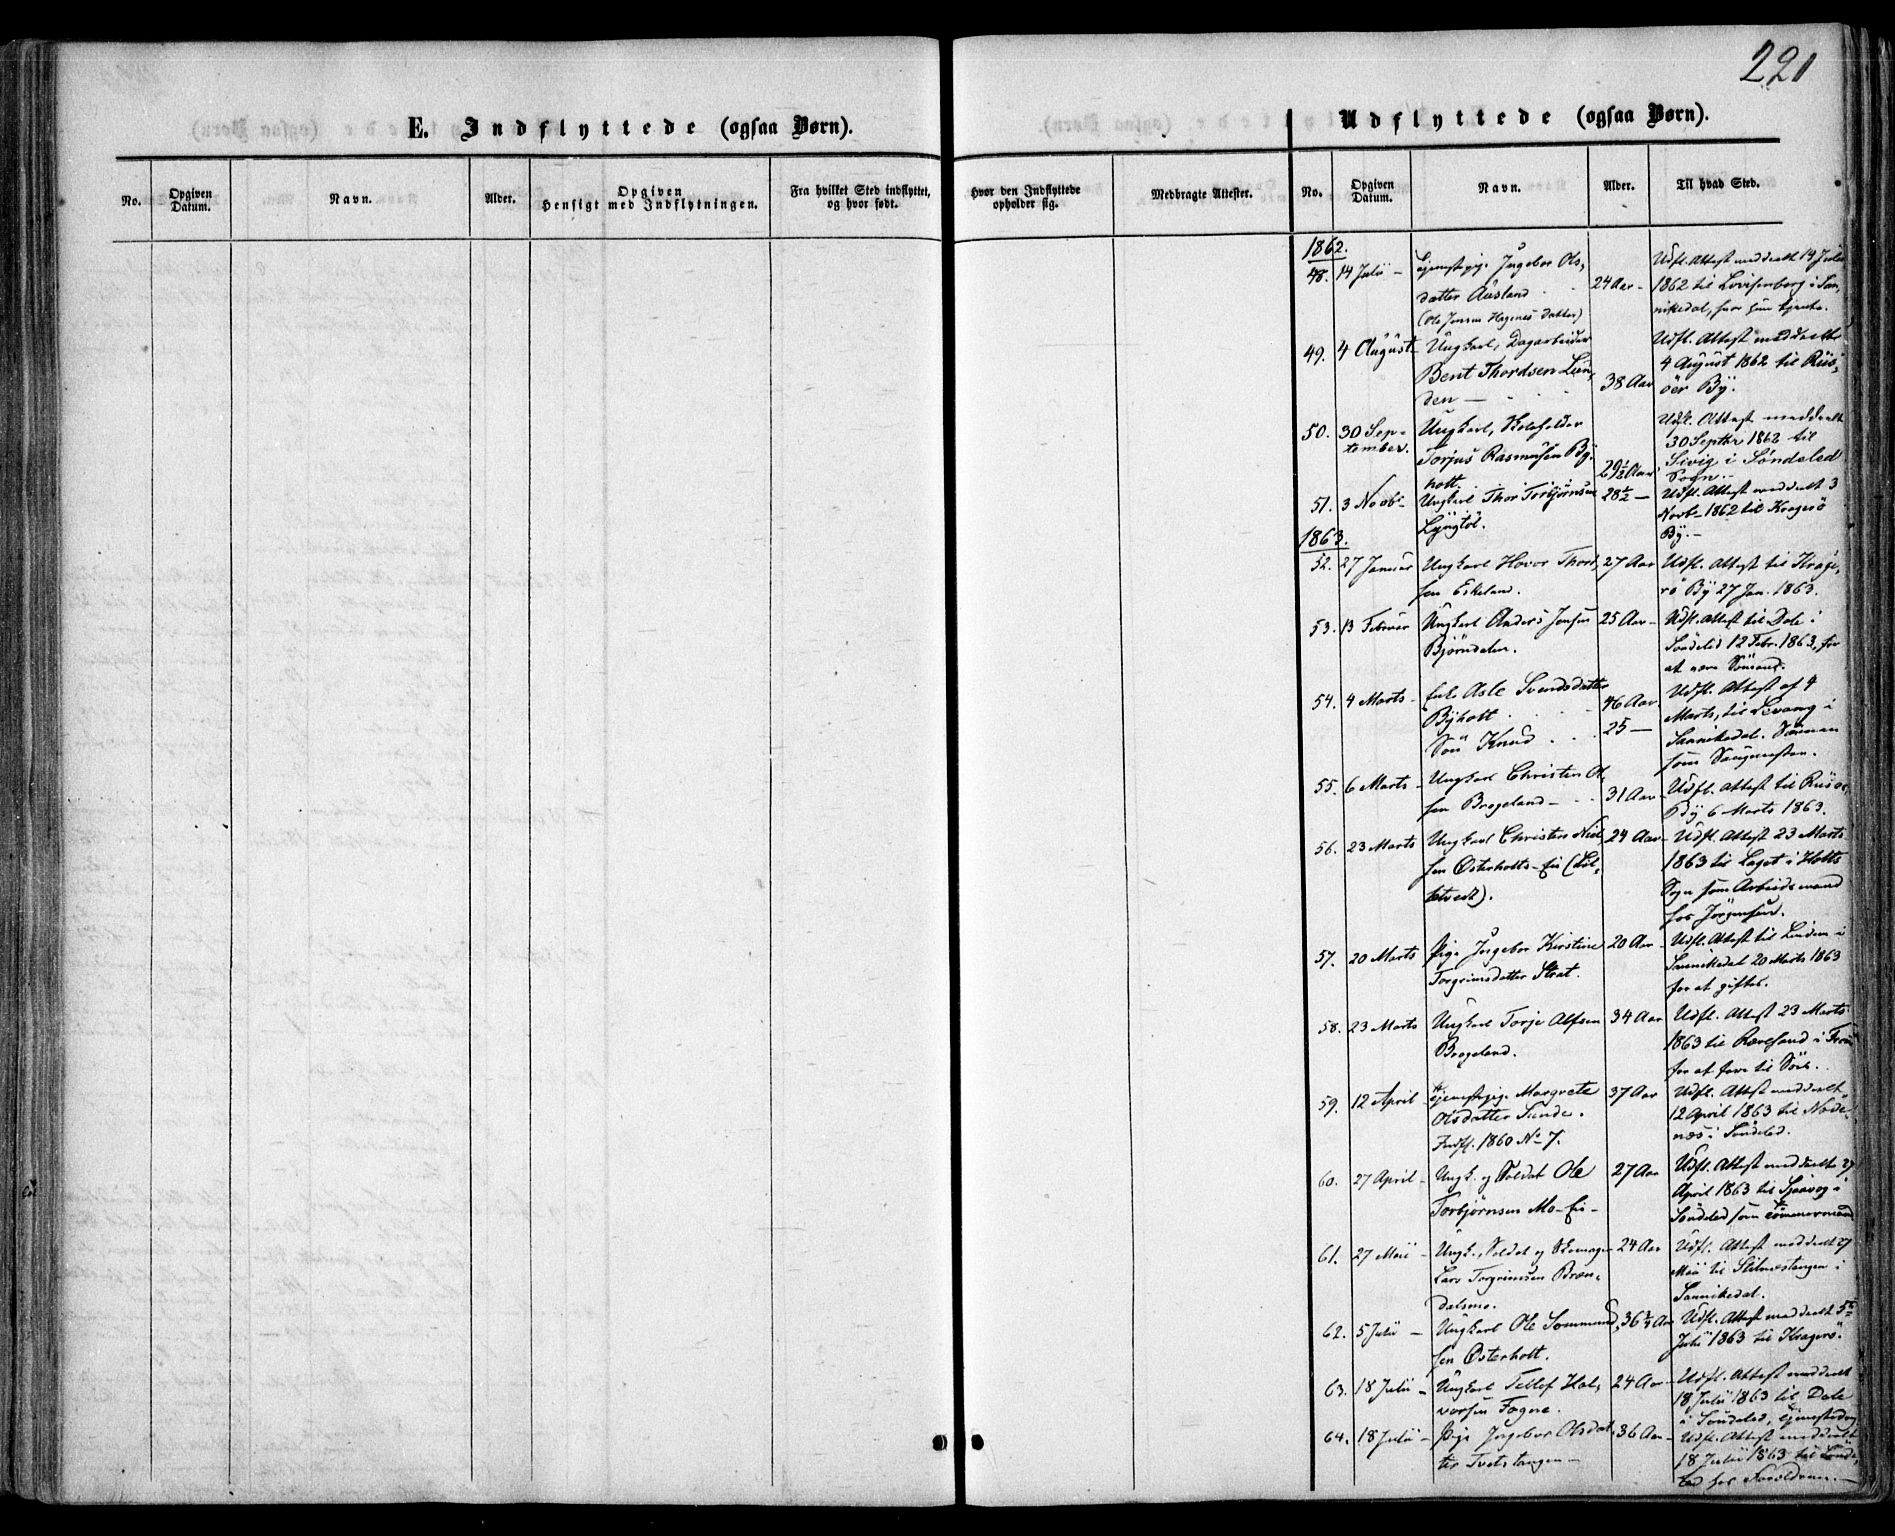 221
E. Indflyttede (ogsaa Børn).
Udflyttede (ogsaa Børn).
No.
Opgiven Datum.
Navn.
Alder.
Opgiven Hensigt med Indflytningen.
Fra hvilket Sted indflyttet, og hvor født.
Hvor den Indflyttede opholder sig.
Medbragte Attester.
No.
Opgiven Datum.
Navn.
Alder.
Til hvad Sted.
1862.
48. 14 Juli – Tjenestepige Ingebor Ols-
datter Ausland
(Ole Jensen Hagenes Datter)
24 Aar –
Udfl. Attest meddeelt 14 Juli
1862 til Lovisenberg i San-
nikedal, hvor hun tjente.
49. 4 August – Ungkarl, Dagarbeider
Bent Thordsen Lun-
den –
38 Aar
Udfl. Attest meddeelt
4 August 1862 til Riis-
öer By.
50. 30 Sep-
tember.
Ungkarl,
Torjus Rasmusen By-
holt.
29½ Aar
Udfl. Attest meddeelt
30 Septbr 1862 til
Sivig i Söndeled
Sogn. –
51. 3 Novbr
Ungkarl Thor Torbjörnsen
Lyngtöl.
28½ –
Udfl. Attest meddeelt 3
Novbr 1862 til Kragerö
By. –
1863.
52. 27 Januar
Ungkarl Hovor Thor-
sen Eskeland.
27 Aar
Udfl. Attest til Krage-
rö By 27 Jan. 1863.
53. 13 Februar
Ungkarl Anders Jensen
Bjørndalen.
25 Aar –
Udfl. Attest til Dale i
Söndeled 12 Febr. 1863, for
at være Sömand.
54. 4 Marts – Enke Asle Svendsdatter
Byholt
Sön Knud
46 Aar
25 –
Udfl. Attest af 4
Marts, til Levang i
Sannikedal. Sönnen
som
55. 6 Marts – Ungkarl Christen Ol-
sen Brogeland –
31 Aar –
Udfl. Attest til Riisöe
By 6 Marts 1863.
56. 23 Marts
Ungkarl Christen Niel-
sen Østerholts-Eie (Löl-
tvedt).
24 Aar –
Udfl. Attest 23 Marts
1863 til Laget i Holts
Sogn som Arbeidsmand
hos Jörgensen.
57. 20 Marts
Pige Ingebor Kirstine
Torgrimsdatter Strat.
20 Aar –
Udfl. Attest til Linden i
Sannikedal 20 Marts 1863
for at giftes.
58. 23 Marts
Ungkarl Torje Alfsen
Brogeland.
34 Aar
Udfl. Attest 23 Marts
1863 til Revesand i Tromö
for at fare til Söes.
59. 12 April – Tjenestepige Margrete
Olsdatter Sunde.
Indfl. 1860 No 7.
37 Aar
Udfl. Attest meddeelt
12 April 1863 til Nöde-
næs i Söndeled.
60. 27 April – Ungk. og Soldat Ole
Torbjørnsen Mo-Eie –
27 Aar
Udfl. Attest meddeelt 27
April 1863 til Sjaavog i
Söndeled som Tömmermand
61. 27 Mai – Ungk., Soldat og Skomager
Lars Torgrimsen Bræn-
dalsmo.
24 Aar
Udfl. Attest meddeelt 27
Mai til Stilnæstangen i
Sannikedal.
62. 5 Juli – Ungkarl Ole Sommund-
sen Østerholt.
36¾ Aar
Udfl. Attest meddeelt 5te
Juli 1863 til Kragerö.
63. 18 Juli – Ungkarl Tellef Hal-
vorsen Fogne.
24 Aar –
Udfl. Attest meddeelt
18 Juli 1863 til Dale
i Söndeled,
64. 18 Juli – Pige Ingebor Olsdat-
ter Tvetstangen –
36 Aar –
Udfl. Attest meddeelt
18 Juli 1863 til Sönde-
led hos Forældrene. –